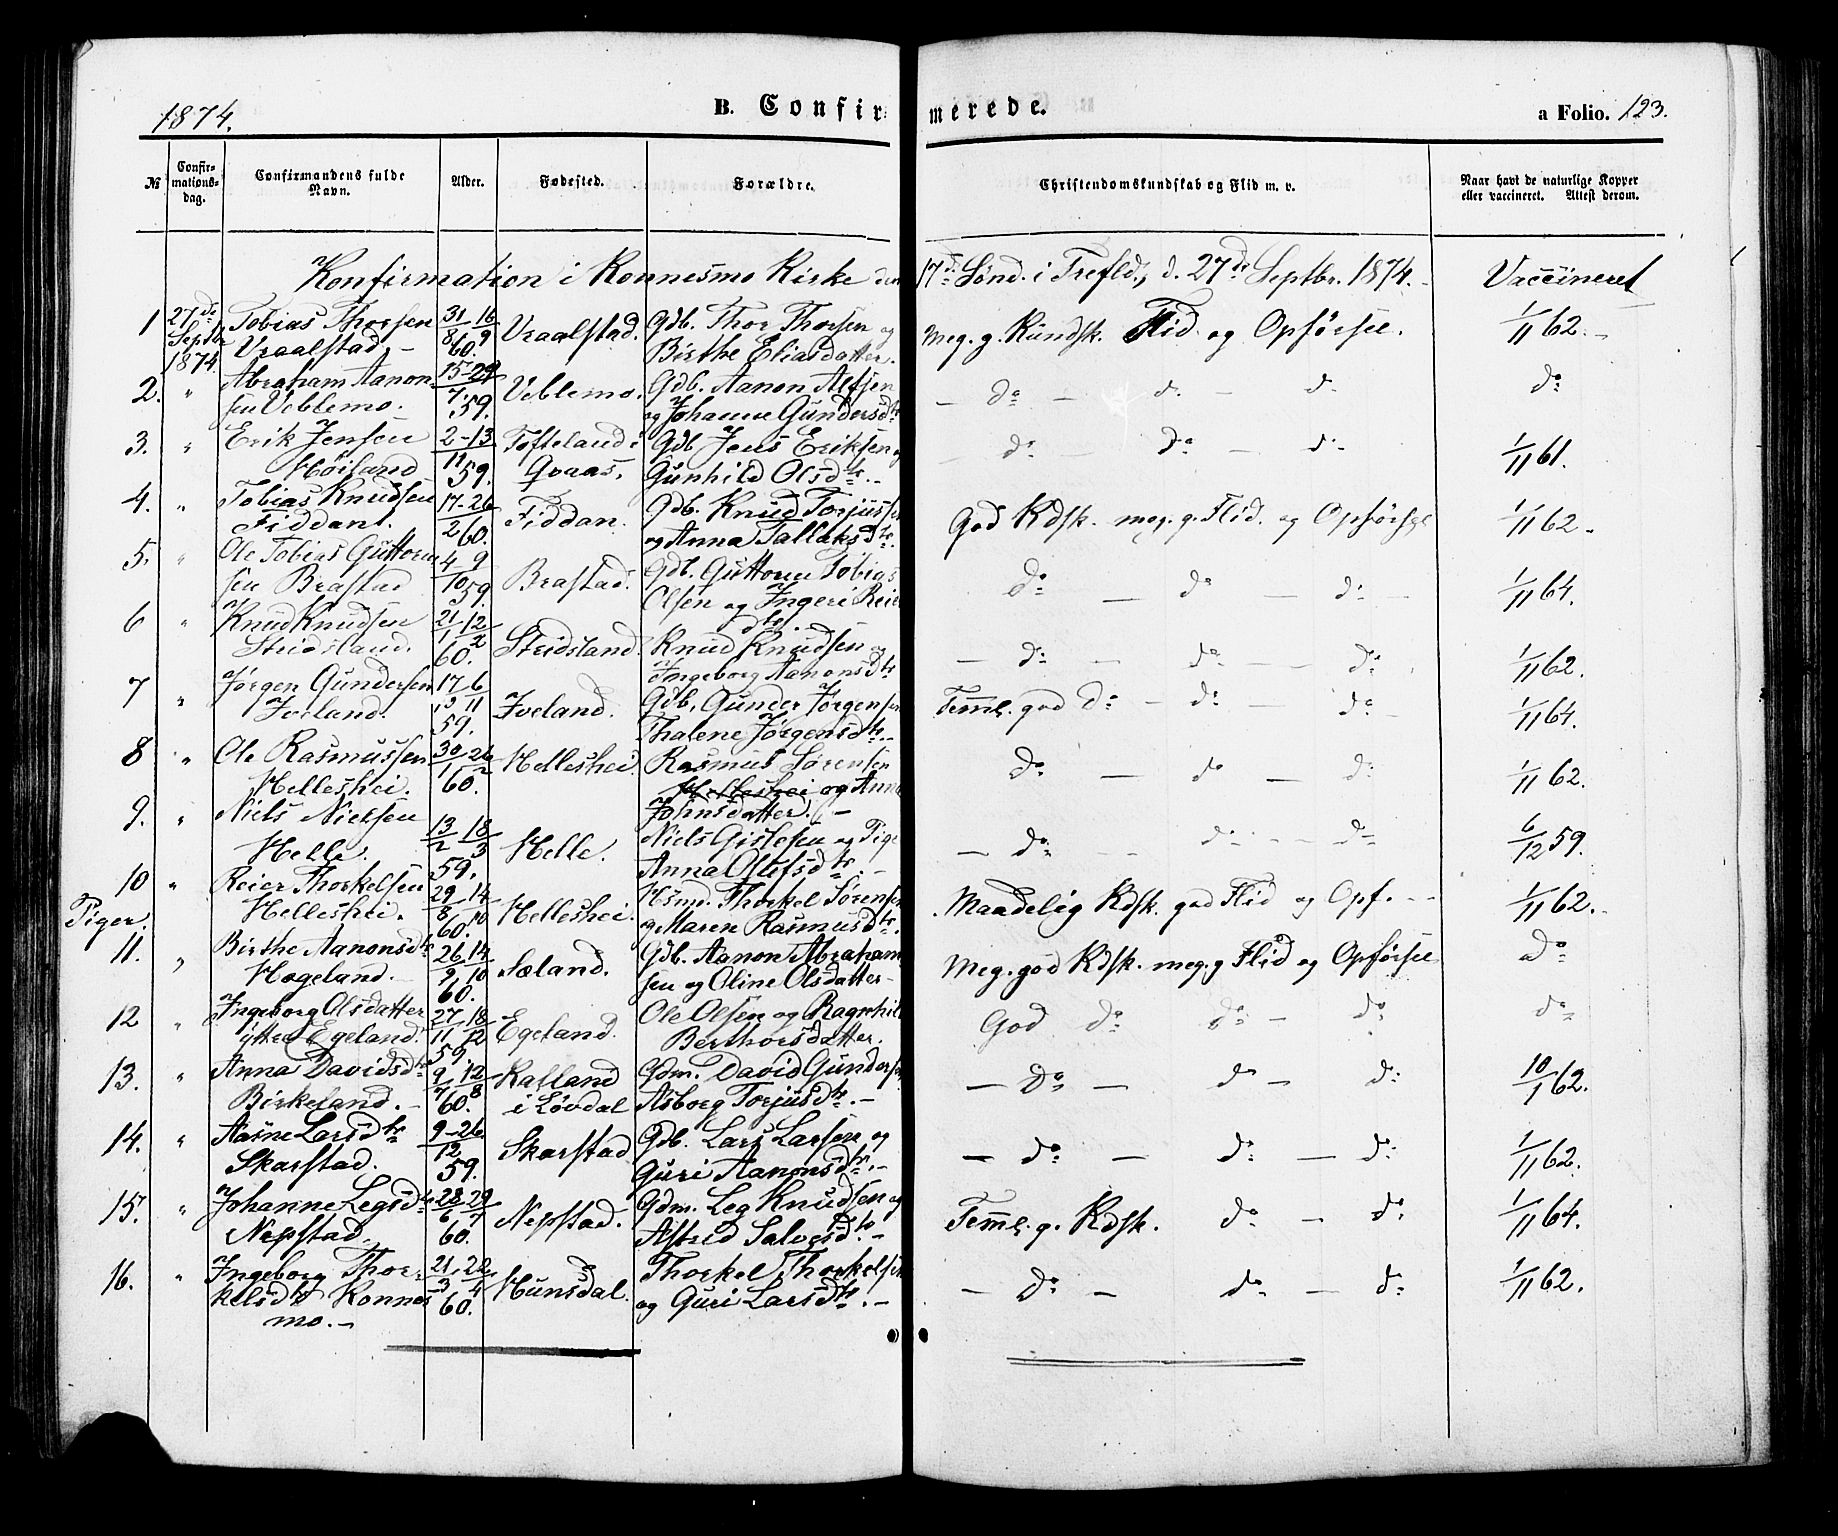 1874. B. Confirmerede. a Folio. 123.
№ Confirmationsdag. Confirmandens fulde Navn. Alder. Fødested. Forældre. Christendomskundskab og Flid m. v. Naar havt de naturlige Kopper eller vaccineret. Attest derom.
Konfirmation i Konnesmo Kirke den 17de Sønd. i Trefld., d. 27de Septbr. 1874. Vaccineret
1 27de Septbr 1874 Tobias Thorsen Vraalstad. 31/8 16/9 60. Vraalstad. Gdb. Thor Thorsen og Birthe Eliasdatter. Meg. g. Kundsk. Flid og Opførsel. 1/11 62.
2. " Abraham Aanonsen Veblemo. 15-29/7 59. Veblemo. Gdb. Aanon Alfsen og Johanne Gundersdtr. do do do do
3. " Erik Jensen Høiland 2-13/11 59. Tofteland i Qvaas. Gdb Jens Eriksen og Gunhild Olsdtr. do do do 1/11 61.
4. " Tobias Knudsen Fiddan. 17-26/2 60. Fiddan. Gdb. Knud Torjussen og Anna Tallaksdtr. God Kdsk. meg. g. Flid. og Opførsel 1/11 62.
5. " Ole Tobias Guttormsen Brastad 4/10 9 59. Brastad. Gdb. Guttorm Tobias Olsen og Ingeri Reiersdtr. do do do 1/11 64.
6 " Knud Knudsen Stridsland. 21/1 12/2 60. Stridsland. Knud Knudsen og Ingeborg Aanonsdtr do do do 1/11 62.
7 " Jørgen Gundersen Iveland. 17 6/11 59. Iveland. Gdb. Gunder Jørgensen Thalene Jørgensdtr. Temml. god do do do 1/11 64.
8 " Ole Rasmussen Helleshei. 30/1 26/2 60. Helleshei. Rasmus Sørensen Helleshei og Anna Johnsdatter. do do do 1/11 62.
9. " Niels Nielsen Helle. 13/2 18/3 59. Helle. Niels Gislesen og Pige Anna Olufsdtr. do do do 6/12 59.
10 " Reier Thorkelsen Helleshei. 29/8 14/10 60. Helleshei. Hsmd. Thorkel Sørensen og Maren Rasmusdtr. Maadelig Kdsk. god Flid og Opf. 1/11 62.
Piger.
11. " Birthe Aanonsdtr Hageland. 26/9 14/10 60. Søland. Gdb. Aanon Abrahamsen og Oline Olsdatter. Meg. god Kdsk. meg. g Flid og Opførsel do
12 " Ingeborg Olsdatter ytter Egeland. 27/11 18/12 59. Egeland. Ole Olsen og Ragnhild Berthorsdatter. God do do do do
13. " Anna Davidsdtr Birkeland. 9/7 12/8 60. Kalland i Lövdal Gdm. David Gundersen Asborg Torjusdtr. do do do 10/1 62.
14. " Aasne Larsdtr Skarstad. 9-26/12 59. Skarstad Gdb. Lars Larsen og Guri Aanonsdtr. do do do 1/11 62.
15. " Johanne Legsdtr Nepstad. 28/6 29/7 60. Nepstad. Gdm. Leg Knudsen og Astrid Salvesdtr. Temml. g. Kdsk. do do 1/11 64.
16. " Ingeborg Thorkelsdtr Konnesmo. 21/3 22/4 60. Hunsdal. Thorkel Thorkelsen og Guri Larsdtr. do do do 1/11 62.